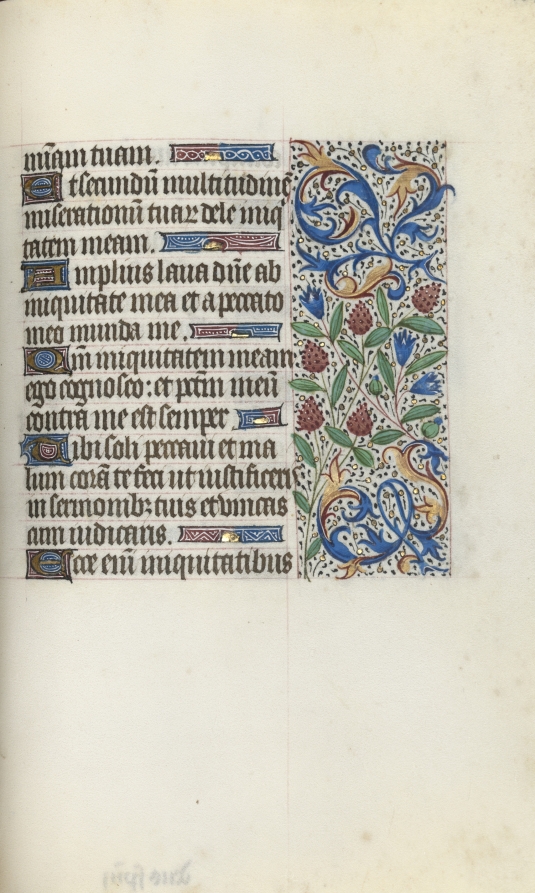 mīam tuam.
Et secundū multitudinē
miserationū tuaꝝ dele iniq
tatem meam.
Amplius laua dūe ab
iniquitate mea et a peccato
meo munda me.
Qm̄ iniquitatem meam
ego cognosco: et pctm̄ meū
contra me est semper
Tibi soli peccaui et ma
lum corā te feci ut iustificeris
in sermonibꝫ tuis et vincas
cum iudicaris.
Ecce eni̅ iniquitatibus